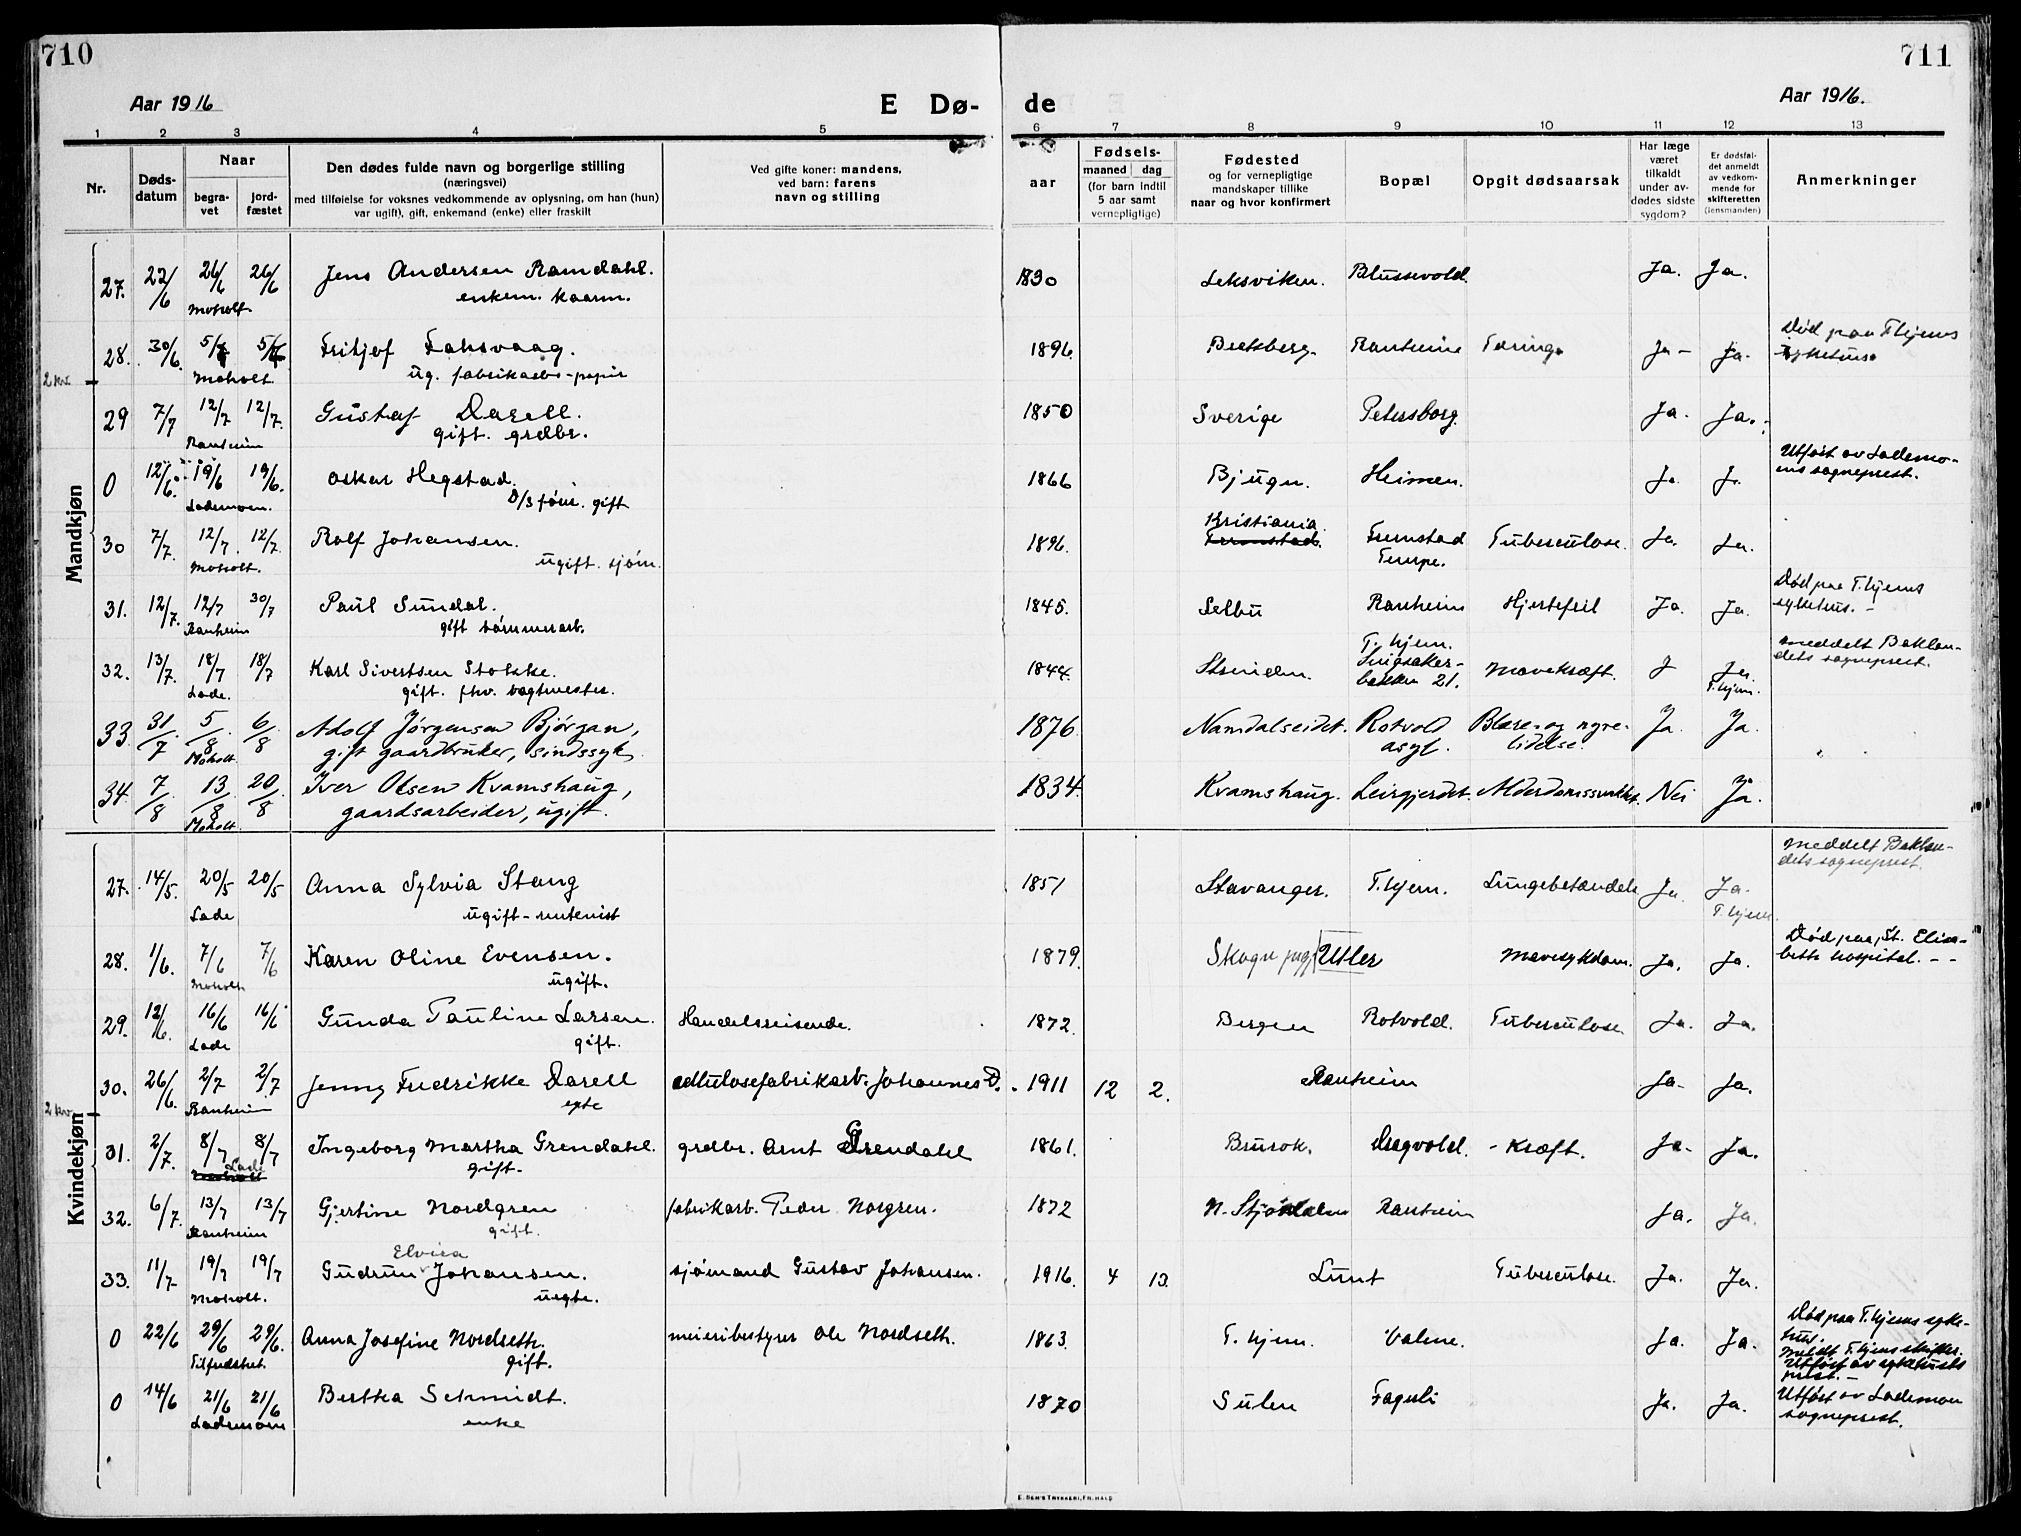 710
711
Aar 1916
E Dø-
de
Aar 1916.
1 2 3 4 5 6 7 8 9 10 11 12 13
Nr.
Døds-
datum
Naar
begra-
vet
jord-
fæstet
Den dødes fulde navn og borgerlige stilling
(næringsvei)
med tilføielse for voksnes vedkommende av oplysning, om han (hun)
var ugift), gift, enkemand (enke) eller fraskilt
Ved gifte koner: mandens,
ved barn: farens
navn og stilling
aar
Fødsels-
maaned dag
(for barn indtil
5 aar samt
vernepligtige)
Fødested
og for vernepligtige
mandskaper tillike
naar og hvor konfirmert
Bopæl
Opgit dødsaarsak
Har læge
været
tilkaldt
under av-
dødes sidste
sygdom?
Er dødsfal-
det anmeldt
av vedkom-
mende for
skifteretten
(lensmanden)
Anmerkninger
Mandkjøn
27. 22/6 26/6 26/6 Jens Andersen Ramdahl. 1830 Leksviken. Blussevold. Ja. Ja.
Moholt. enkem. kaarm.
28. 30/6 5/7 5/7 Fritjof Faksvaag. 1896. Bratsberg. Ranheim Tæring. Ja - Ja. Død paa T.hjems
Moholt. ug. fabrikarb-papir sykehus.
2 kv.
29 7/7 12/7 12/7. Gustaf Darell. 1850 Sverige Petersborg. Ja. Ja.
Ranheim gift. grdbr.
0 12/6. 19/6 19/6. Oskar Hegstad. 1866 Bjugn. Heimen. Ja. Ja. Utført av Lademo-
Lademoen. D/S fører. gift ens sogneprest.
30 7/7. 12/7. 12/7 Rolf Johansen. 1896. Kristiania. Fremstad Tuberculose. Ja. Ja.
Moholt. ugift. sjøm. Tempe.
31. 12/7. 12/7 30/7 Paul Sundal. 1845. Selbu Ranheim Hjertefeil Ja. Ja. Død paa T.hjems
Ranheim gift tømmerarb. sykehus. -
32. 13/7. 18/7 18/7 Karl Sivertsen Stokke. 1844. Strinden. T.hjem. Mavekræft. J Ja. Meddelt Baklan-
Lade. gift. fhv. vogtmester. Singsaker-
bakken 21. T.hjem. dets sogneprest.
33 31/7 5/8 6/8 Adolf Jørgensen Bjørgan, 1876. Namdalseidet. Rotvold Blære- og nyre- Ja. Ja.
Moholt gift gaardbruker, sindssyk asyl. lidelse.
34. 7/8 13/8 20/8 Iver Olsen Kvamshaug, 1834. Kvamshaug. Leirgjerdet. Alderdomssvakhet. Nei Ja.
Moholt gaardsarbeider, ugift.
Kvindekjøn
27. 14/5 20/5 20/5 Anna Sylvia Stang 1851 Stavanger. T.hjem. Lungebetændels Ja Ja. Meddelt Baklan-
Lade ugift - rentenist T.hjem. dets sogneprest.
28. 1/6. 7/6 7/6 Karen Oline Evensen. 1879. Skogn Utler Mavesykdom. Ja. Ja. Død paa St. Elisa-
Moholt ugift. beths hospital. - -
29. 12/6. 16/6 16/6 Gunda Pauline Larsen. Handelsreisende. 1872. Bergen Rotvold. Tuberculose Ja. Ja.
Lade gift.
30. 26/6. 2/7 2/7 Jenny Fredrikke Darell cellulosefabrikarb. Johannes D. 1911 12 2. Ranheim Ja- Ja.
Ranheim egte
2 kv.
31. 2/7. 8/7 8/7 Ingeborg Martha Grendahl. grdbr. Arnt Grendahl 1861. Burok. Dragvold. - Kræft. Ja- Ja.
Lade gift-
32. 6/7. 13/7 13/7 Gjertine Nordgren fabrikarb. Peder Norgren. 1872 N. Stjørdalen Ranheim Ja. Ja.
Ranheim gift.
33. 11/7 19/7 19/7 Gudrun Elvira Johansen. sjømand Gustav Johansen. 1916. 4 13. Lunt Tuberculose. Ja. Ja.
Moholt. uegte.
0 22/6 29/6 29/6. Anna Josefine Nordseth. meieribestyrer Ole Nordseth. 1863. T.hjem. Valene. Ja. Ja. Død paa T.hjems syke-
Tilfredshet. gift. hus.
Meldt T.hjems skifter.
Utført av sykehusets
prest. -
0 14/6 21/6 21/6 Bertha Schmidt. 1870 Sulen Fagerli Ja. Ja. Utført av Lademoen
Lademoen enke sogneprest.
E. SEM'S TRYKKERI, FR.HALD